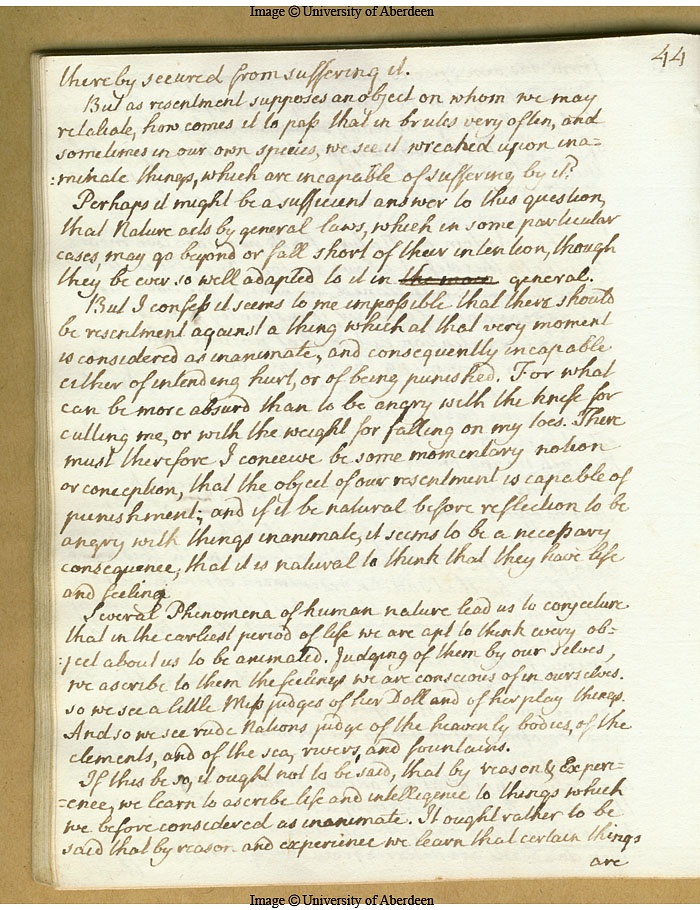 Image © University of Aberdeen
44
thereby secured from suffering it.
But as resentment supposes an object on whom we may
retaliate, how comes it to pass that in brutes very often, and
sometimes in our own species, we see it wreaked upon ina=
:minate things, which are incapable of suffering by it?
Perhaps it might be a sufficient answer to this question,
that Nature acts by general laws, which in some particular
cases, may go beyond or fall short of their intention, though
they be ever so well adapted to it in the main general.
But I confess it seems to me impossible that there should
be resentment against a thing which at that very moment
is considered as inanimate, and consequently incapable
either of intending hurt, or of being punished. For what
can be more absurd than to be angry with the knife for
cutting me, or with the weight for falling on my toes. There
must therefore I conceive be some momentary notion
or conception, that the object of our resentment is capable of
punishment; and if it be natural before reflection to be
angry with things inanimate, it seems to be a necessary
consequence, that it is natural to think that they have life
and feeling.
Several Phenomena of human nature lead us to conjecture
that in the earliest period of life we are apt to think every ob=
:ject about us to be animated. Judging of them by our selves,
we ascribe to them the feelings we are conscious of in ourselves.
so we see a little Miss judges of her Doll and of her play things.
And so we see rude Nations judge of the heavenly bodies, of the
elements, and of the sea, rivers, and fountains.
If this be so, it ought not to be said, that by reason & Experi=
=ence, we learn to ascribe life and intelligence to things which
we before considered as inanimate. It ought rather to be
said that by reason and experience we learn that certain things
are
Image © University of Aberdeen